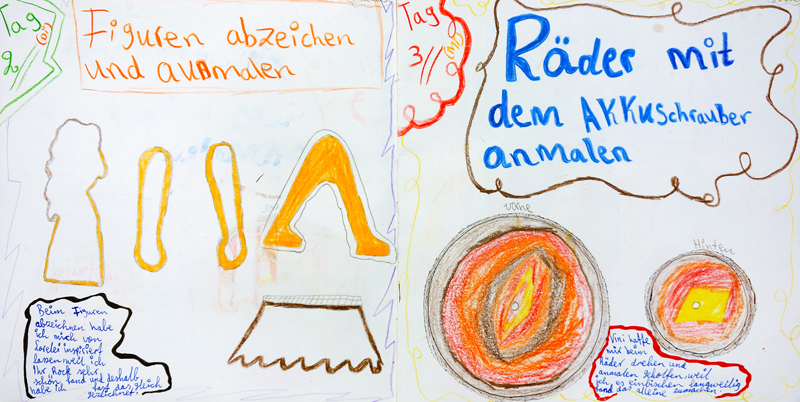 Tag
2//
(Di)
Figuren abzeichen
und aunmalen
Beim Figuren
abzeichnen habe
ich mich von
Lorelei inspiriert
lassen weil ich
Ihr Rock sehr
schön fand und deshalb
habe ich fast das gleich
gezeichnet.
Tag
3//
(Mi)
Räder mit
dem AKKuschrauber
anmalen
vorne
Hinten
Vini hatte
mir beim
Räder drehen und
anmalen geholfen weil
ich es einbischen langweilig
fand das alleine zumachen.